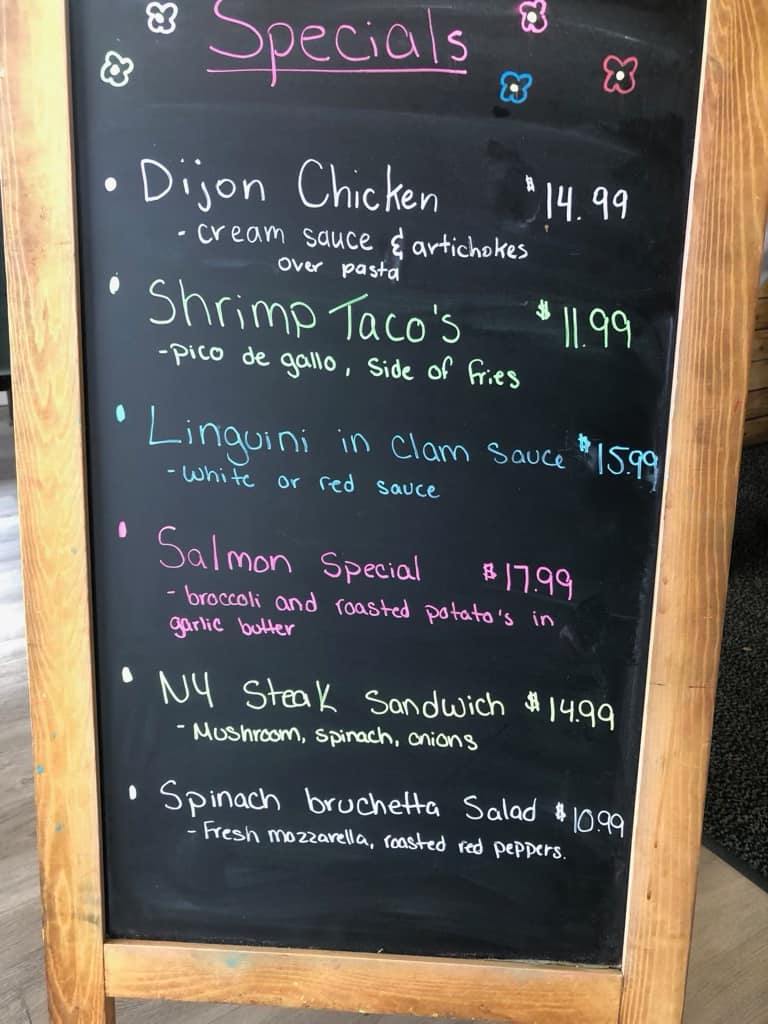 Specials
• Dijon Chicken $14.99
- cream sauce & artichokes
over pasta
• Shrimp Taco's $11.99
- pico de gallo, side of fries
• Linguini in clam sauce $15.99
- white or red sauce
• Salmon Special $17.99
- broccoli and roasted potato's in
garlic butter
• NY Steak Sandwich $14.99
- Mushroom, spinach, onions
• Spinach bruchetta Salad $10.99
- Fresh mozzarella, roasted red peppers.